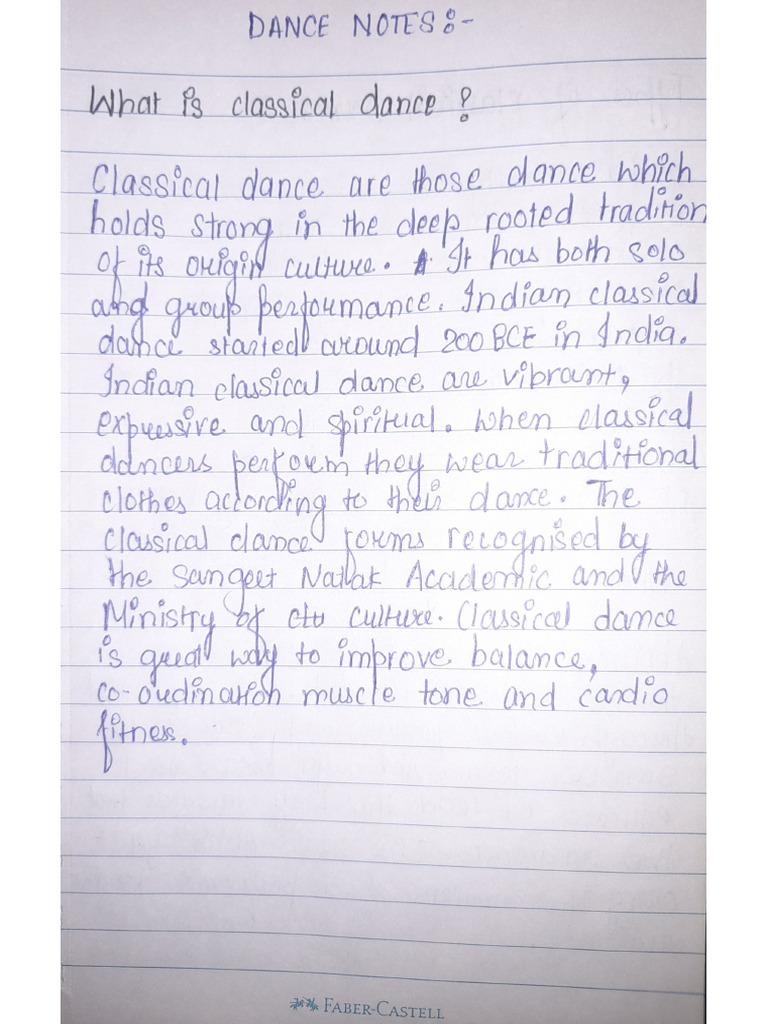 DANCE NOTES:-
What is classical dance?
Classical dance are those dance which
holds strong in the deep rooted tradition
of its origin culture. It has both solo
and group performance. Indian classical
dance started around 200 BCE in India.
Indian classical dance are vibrant,
expressive and spiritual. When classical
dancers perform they wear traditional
clothes according to their dance. The
classical dance forms recognised by
the Sangeet Natak Academic and the
Ministry of ctu culture. Classical dance
is great way to improve balance,
co-ordination muscle tone and cardio
fitness.
FABER-CASTELL